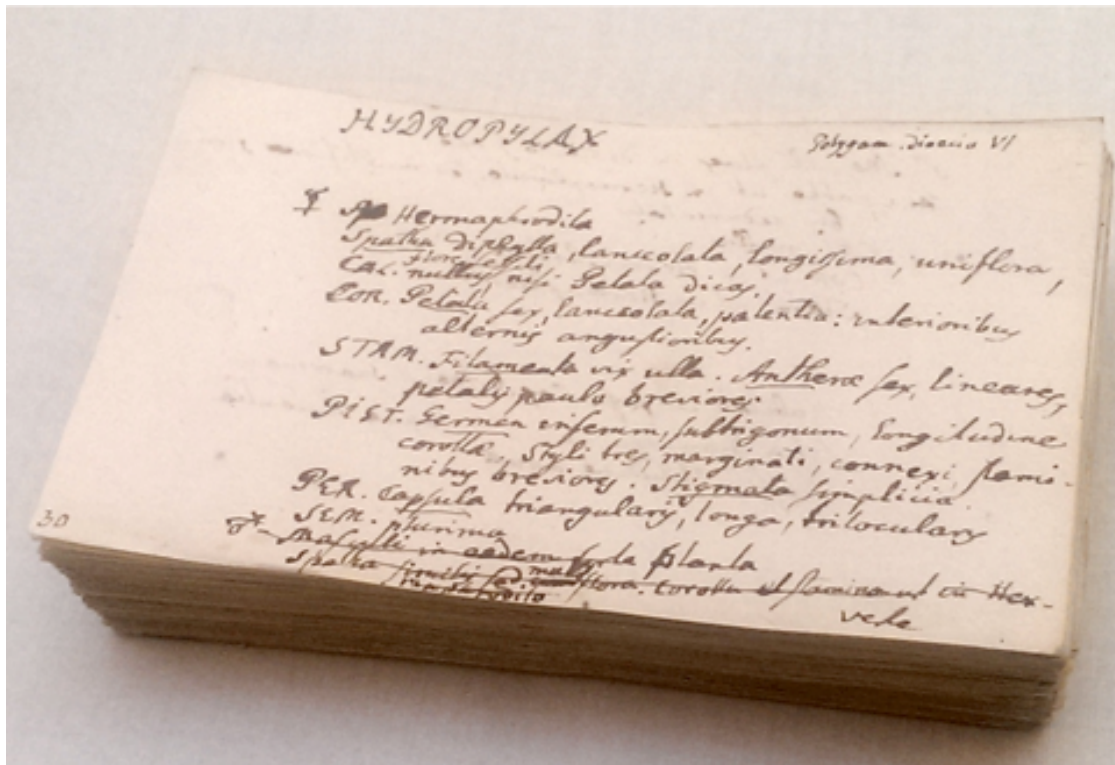 HYDROPYLAX
Polygam. dioecia VI
☿ Hermaphrodita
Spatha diphylla, lanceolata, longissima, uniflora,
flore sessili
CAL. nullus, nisi Petala dicas.
COR. Petala sex, lanceolata, patentia: interioribus
alternis angustioribus.
STAM. Filamenta vix ulla. Antheræ sex, lineares,
petalis paulo breviores.
PIST. Germen inferum, subtrigonum, longitudine
corollæ, Styli tres, marginati, connexi, stami-
nibus breviores. Stigmata simplicia
PER. Capsula triangularis, longa, trilocularis
SEM. plurima
♂ Masculi in eadem planta
Spatha similis sed flora. Corolla et stamina ut in Her-
verte
30